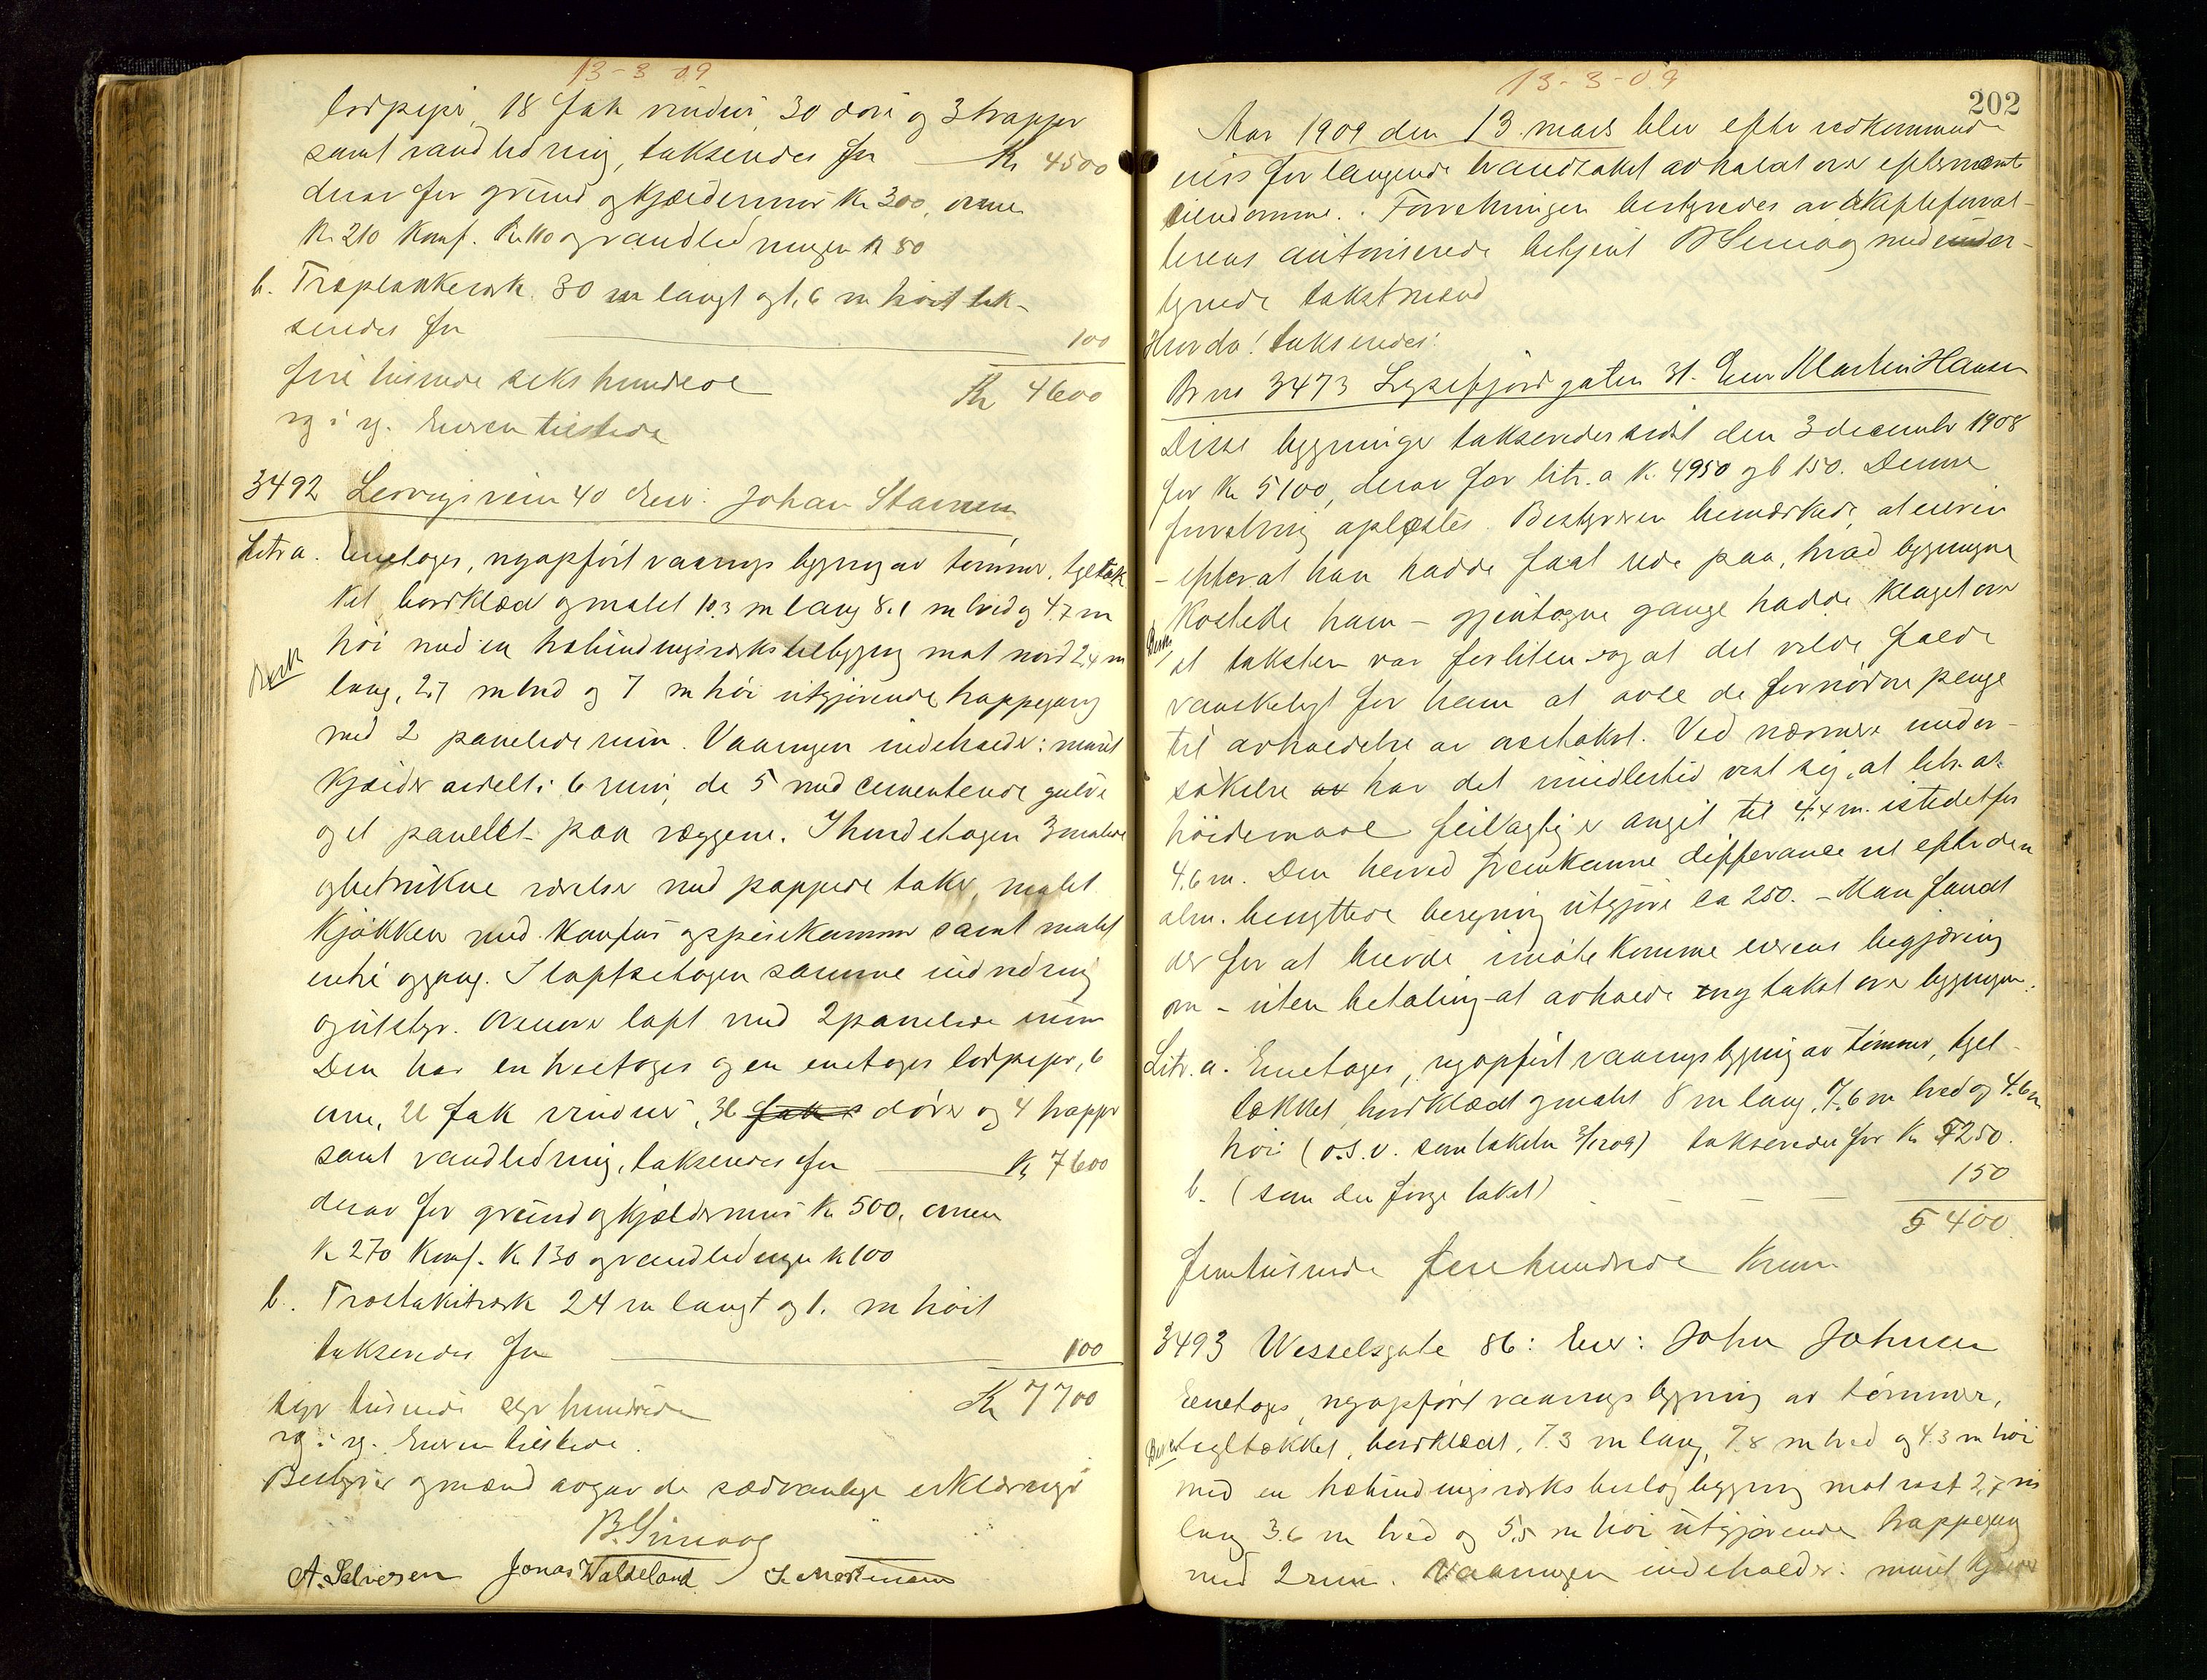 13-3 09
lodpipe, 18 fak vinduer, 30 döre og 3 trapper
samt vandledning, takseredes for Kr 4500
derav for grund og kjældermur Kr 300, ovnene
Kr 210 Komf. Kr 110 og vandledningen Kr 80
b. Træplankeverk 30 m langt og 1,6 m höit tak-
seredes for 100
fire tusinde sekshundrede Kr 4600
rg: rg. Eieren tilstede
3492 Lervigsveien 40 Eier: Johan Stamnes
Litr a. Enetages, nyopfört vaaningsbygning av tömmer, tegltæk
ket bordklædt og malet 10.3 m lang 8.1 m bred og 4.7 m
höi med en utbindingsverks tilbygning mot nord 2,4 m
lang, 2.7 m bred og 7 m höi utgjörende trappegang
med 2 panelede rum. Vaaningen indeholder: muret
kjælder avdelt i 6 rum, de 5 med cementerede gulve
og et panelet paa væggene. I hovedetagen 3 malede
og betrukne værelser med pappede taker, malet
kjökken med komfur og spisekammer samt malet
entre og gang. I loftsetagen samme indredning
og utstyr. Överste loft med 2 panelede rum
Den har en toetages og en enetages lodpipe, 6
ovne, 21 fak vinduer, 36 fak döre og 4 trapper
samt vandledning, takseredes for Kr 7600
derav for grund og kjældermur Kr 500, ovnene
Kr 270 Komf. Kr 130 og vandledningen Kr 100
b. Træstakitverk 24 m langt og 1. m höit
takseredes for 100
syv tusinde syv hundrede Kr 7700
rg: rg. Eieren tilstede.
Bestyrer og mænd avgav de sædvanlige erklæringer
B. Simoog
A. Salvesen Jonas Waldeland
13-3-09
202
Aar 1909 den 13. mars blev efter vedkommende
eiers forlangende brandtakst avholdt over efternævnte
eiendomme. Forretningen bestyredes av
lerens autoriserede betjent B Simoog med under-
tegnede takstmænd
Hvorda! takseredes:
Br no 3473 Lysefjordgaten 31. Eier Martin Hansen
Disse bygninger takseredes sidst den 3 december 1908
for Kr 5100, derav for litr. a Kr. 4950 og b 150. Denne
forretning oplæstes. Bestyreren bemerkede, at eieren
- efterat han hadde faat rede paa, hvad bygningene
kostede ham - gjentagne gange hadde klaget over
at taksten var for liten og at det vilde falde
vanskeligt for ham at faa de fornödne penge
til avholdelse av nytakst. Ved nærmere under-
sökelse har det imidlertid vist sig, at litr. as
höidemaal feilagtig er angit til 4,4 m. istedetfor
4,6 m. Den herved fremkomne differance vil efter den
alm. benyttede beregning utgjöre ca 250. - Man fandt
derfor at burde imötekomme eierens begjæring
om - uten betaling - at avholde ny takst over bygningen.
Litr. a. Enetages, nyopfört vaaningsbygning av tömmer, tegl-
tækket, bordklædt og malet 8 m lang, 7.6 m bred og 4.6 m
höi (o.s.v. som taksten 3/12 09) takseredes for Kr 5250.
b. (som den forrige takst) 150
5400.
femtusinde firehundrede kroner
3493 Wesselsgate 86: Eier: John Johnsen
Enetages, nyopfört vaaningsbygning av tömmer,
tegltækket, bordklædt, 7.3 m lang, 7.8 m bred og 4.3 m höi
med en utbindingsverks tilbygning mot vest 2,7 m
lang 3.6 m bred og 5,5 m höi utgjörende trappegang
med 2 rum. Vaaningen indeholder: muret kjælder